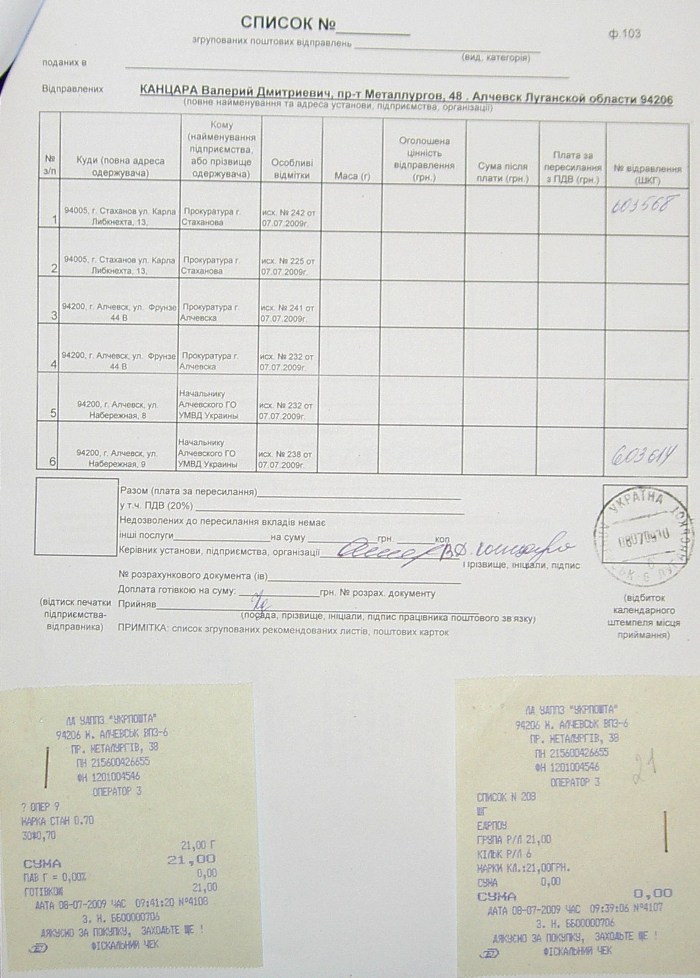 СПИСОК №
ф.103
згрупованих поштових відправлень
(вид, категорія)
поданих в
Відправлених КАНЦАРА Валерий Дмитриевич, пр-т Металлургов, 48 , Алчевск Луганской области 94206
(повне найменування та адреса установи, підприємства, організації)
№ з/п Куди (повна адреса одержувача) Кому (найменування підприємства, або прізвище одержувача) Особливі відмітки Маса (г) Оголошена цінність відправлення (грн.) Сума після плати (грн.) Плата за пересилання з ПДВ (грн.) № відравлення (ШКГ)
1 94005, г. Стаханов ул. Карла Либкнехта, 13, Прокуратура г. Стаханова исх. № 242 от 07.07.2009г. 603568
2 94005, г. Стаханов ул. Карла Либкнехта, 13, Прокуратура г. Стаханова исх. № 225 от 07.07.2009г.
3 94200, г. Алчевск, ул. Фрунзе 44 В Прокуратура г. Алчевска исх. № 241 от 07.07.2009г.
4 94200, г. Алчевск, ул. Фрунзе 44 В Прокуратура г. Алчевска исх. № 232 от 07.07.2009г.
5 94200, г. Алчевск, ул. Набережная, 8 Начальнику Алчевского ГО УМВД Украины исх. № 232 от 07.07.2009г.
6 94200, г. Алчевск, ул. Набережная, 9 Начальнику Алчевского ГО УМВД Украины исх. № 238 от 07.07.2009г. 603614
Разом (плата за пересилання)
у т.ч. ПДВ (20%)
Недозволених до пересилання вкладів немає
інші послуги на суму грн. коп
Керівник установи, підприємства, організації
Прізвище, ініціали, підпис
УКРАЇНА
№ розрахункового документа (ів)
Доплата готівкою на суму: грн. № розрах. документу
Прийняв
(посада, прізвище, ініціали, підпис працівника поштового зв'язку)
(відтиск печатки підприємства-відправника)
(відбиток календарного штемпеля місця приймання)
ПРИМІТКА: список згрупованих рекомендованих листів, поштових карток
ЛА УАППЗ "УКРПОШТА"
94206 М. АЛЧЕВСЬК ВПЗ-6
ПР. МЕТАЛУРГІВ, 38
ПН 215600426655
ФН 1201004546
ОПЕРАТОР 3
? ОПЕР ?
МАРКА СТАН 0.70
30*0,70
21,00 Г
СУМА 21,00
ПДВ Г = 0,00% 0,00
ГОТІВКОЮ 21,00
ДАТА 08-07-2009 ЧАС 09:41:20 №4108
З. Н. ББ00000706
ДЯКУЄМО ЗА ПОКУПКУ, ЗАХОДЬТЕ ЩЕ !
ФІСКАЛЬНИЙ ЧЕК
ЛА УАППЗ "УКРПОШТА"
94206 М. АЛЧЕВСЬК ВПЗ-6
ПР. МЕТАЛУРГІВ, 38
ПН 215600426655
ФН 1201004546
ОПЕРАТОР 3
21
СПИСОК N 208
ГРУПА Р/Л 21,00
КІЛЬК Р/Л 6
МАРКИ КЛ.:21,00ГРН.
СУМА 0,00
СУМА 0,00
ДАТА 08-07-2009 ЧАС 09:39:06 №4107
З. Н. ББ00000706
ДЯКУЄМО ЗА ПОКУПКУ, ЗАХОДЬТЕ ЩЕ !
ФІСКАЛЬНИЙ ЧЕК